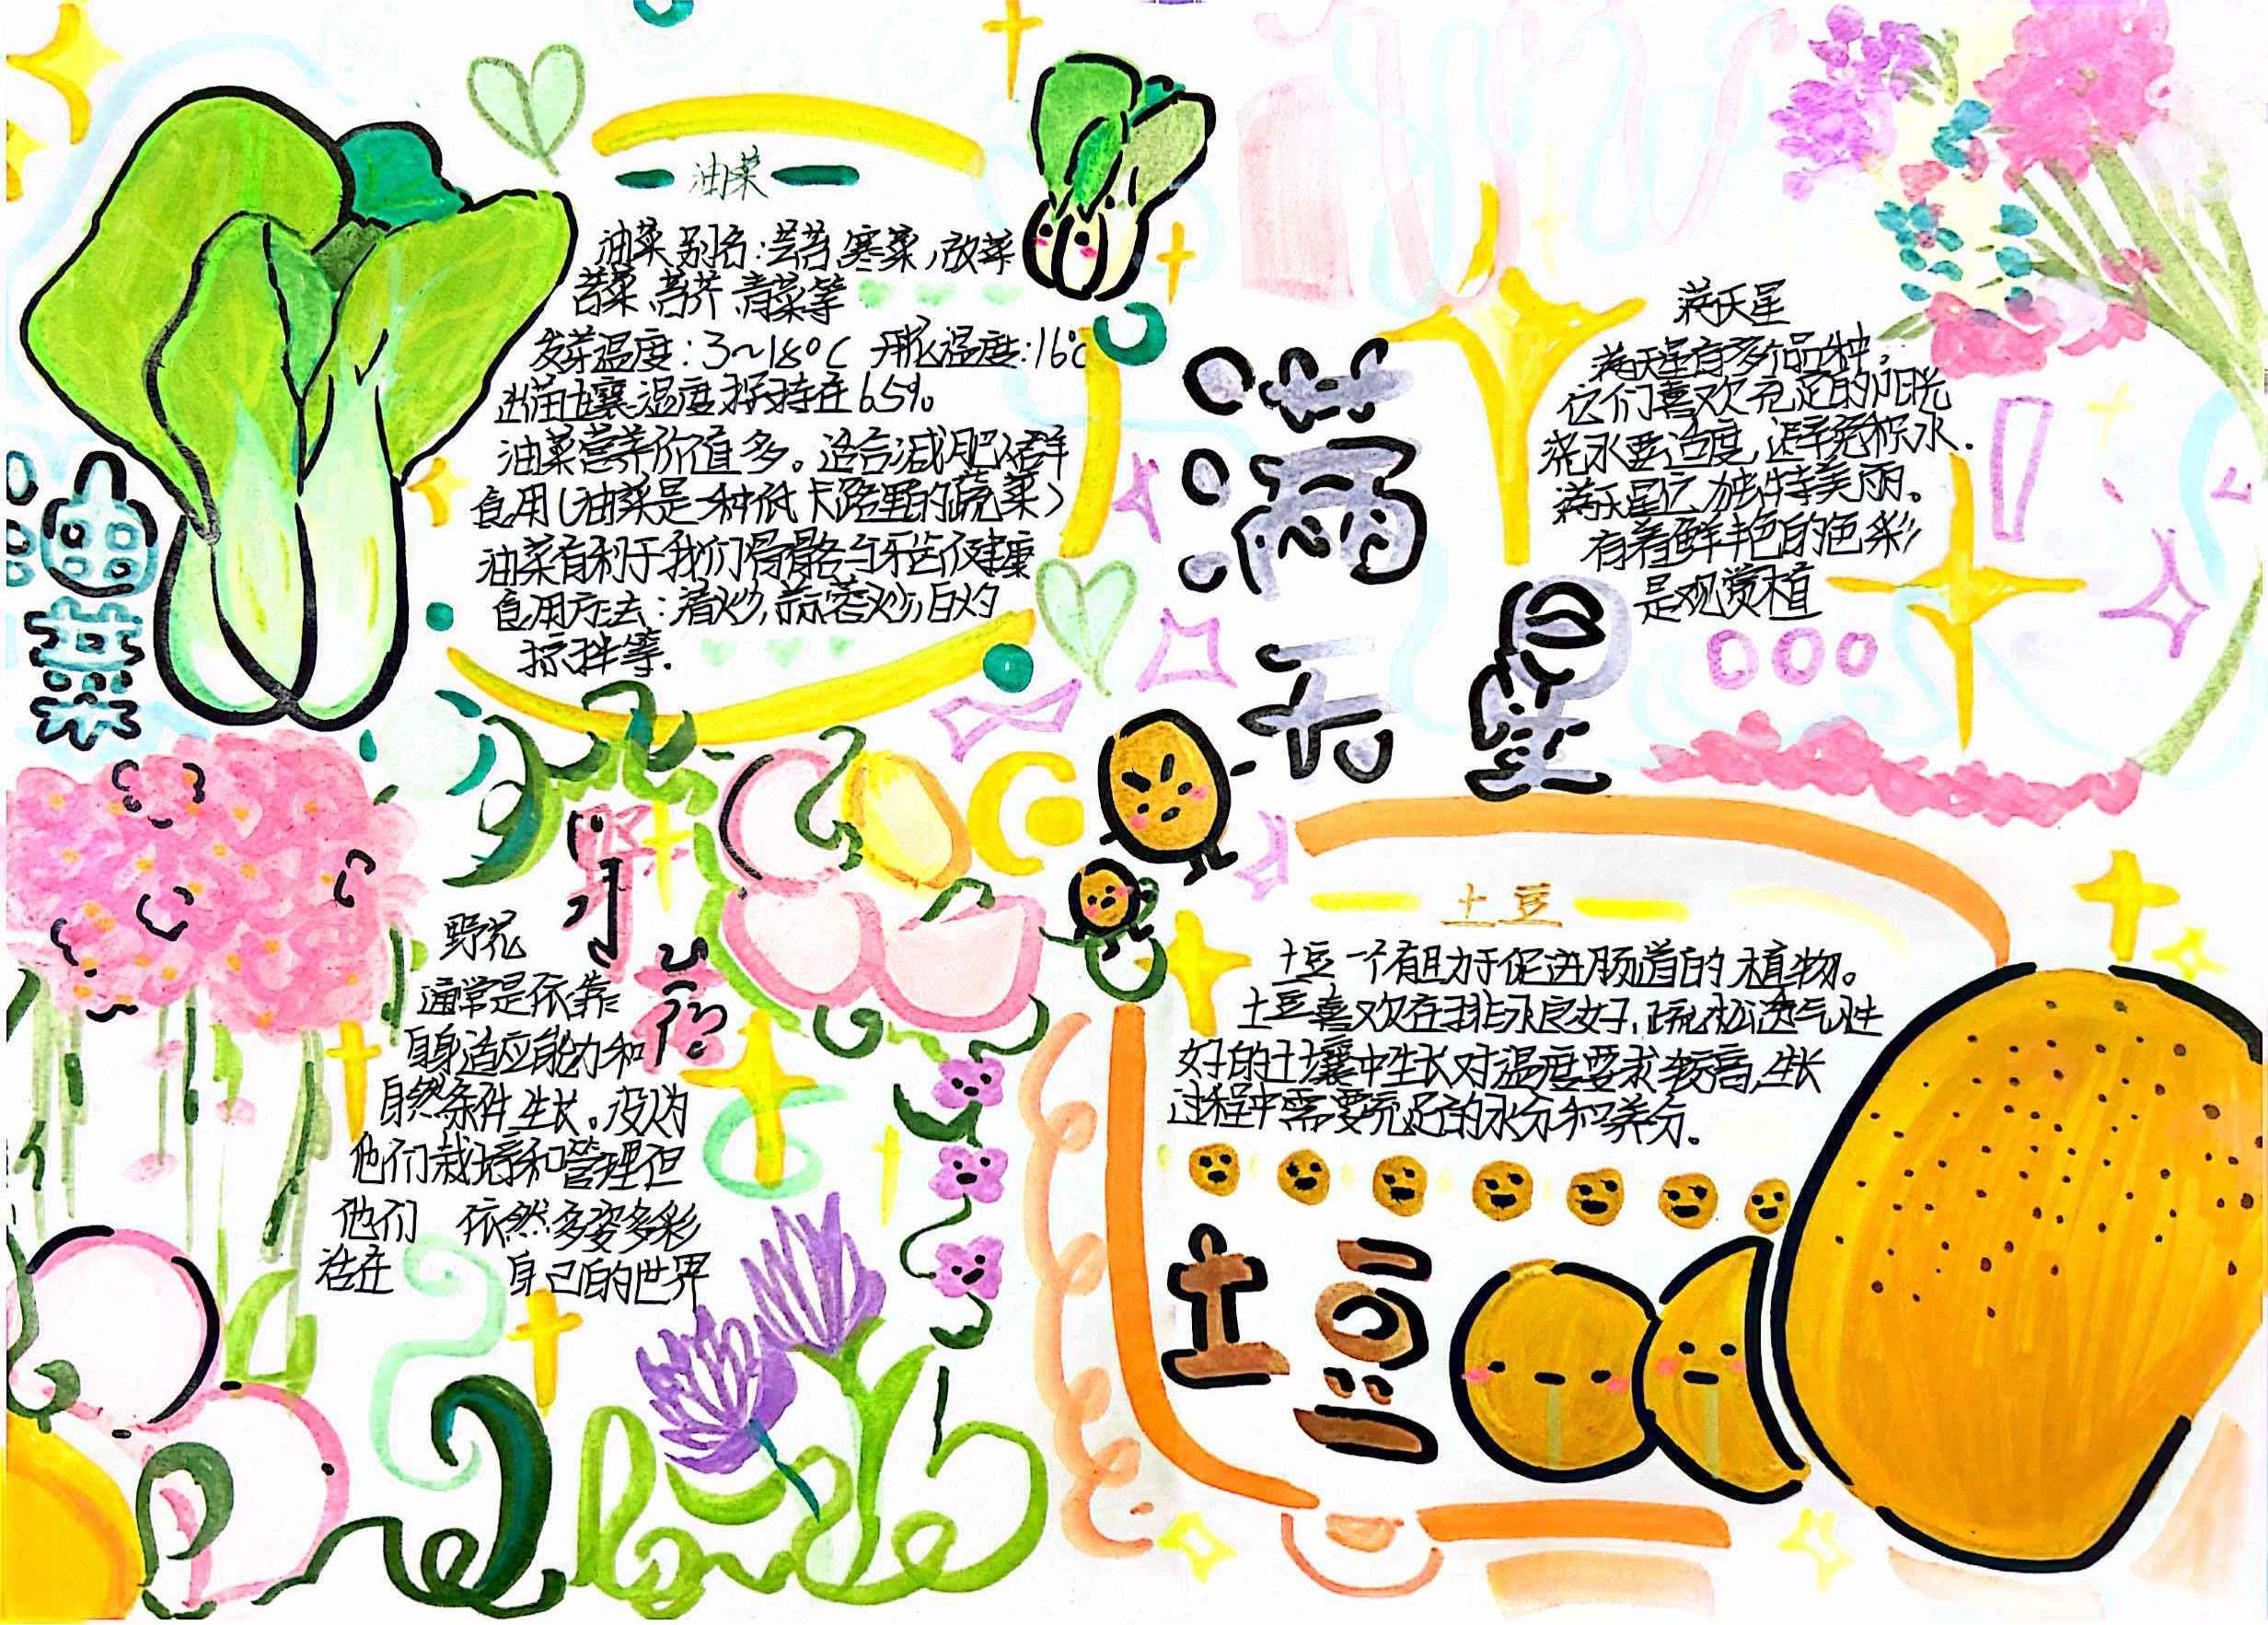 油菜
油菜别名：芸苔,寒菜,
苔菜,苔芥,青菜等
发芽温度：3~18°C 开花温度：16℃
出苗土壤湿度保持在65%。
油菜营养价值多。适合减肥人群
食用（油菜是一种低卡路里的蔬菜）
油菜有利于我们骨骼与牙齿健康
食用方法：清炒,蒜蓉炒,白灼
凉拌等.
油菜
满天星
满天星
满天星有多个品种,
它们喜欢充足的阳光
浇水要适度,避免积水.
满天星独特美丽。
有着鲜艳的色彩
是观赏植
野花
野花
通常是依靠
自身适应能力和
自然条件生长。没为
他们栽培和管理但
他们 依然多姿多彩
活在 自己的世界
土豆
土豆一个有助于促进肠道的植物。
土豆喜欢在排水良好,疏松透气性
好的土壤中生长对温度要求较高,生长
过程中需要充足的水分和养分。
土豆